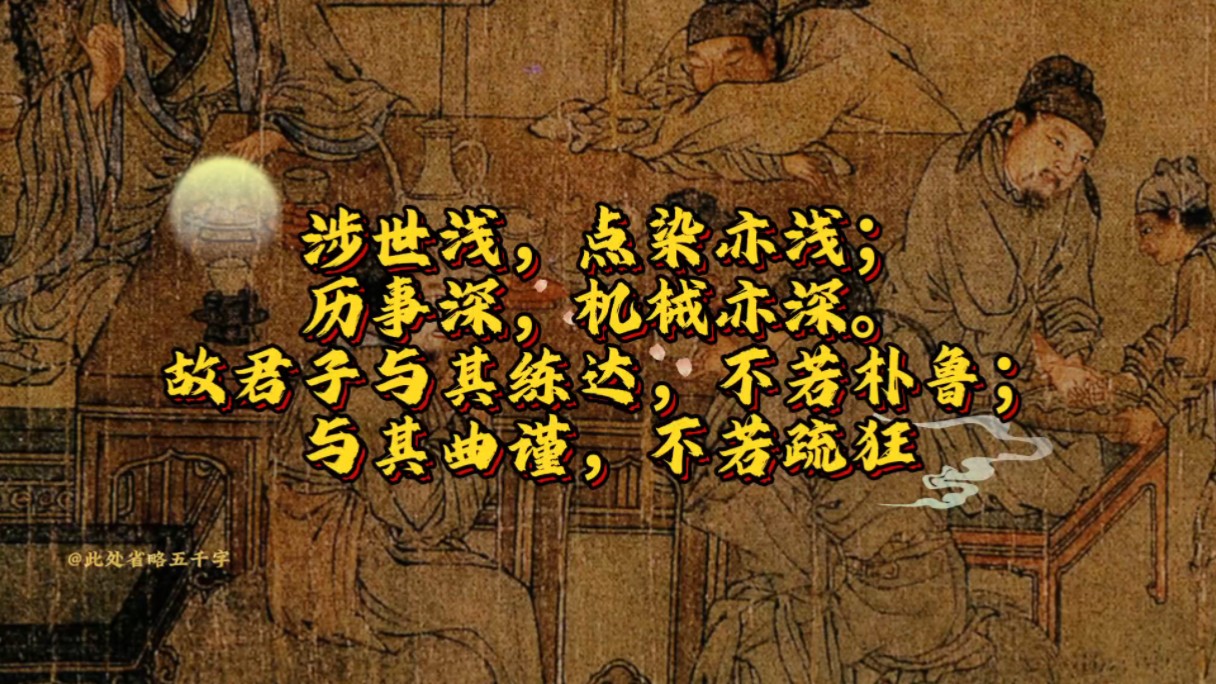 涉世浅，点染亦浅；
历事深，机械亦深。
故君子与其练达，不若朴鲁；
与其曲谨，不若疏狂
@此处省略五千字